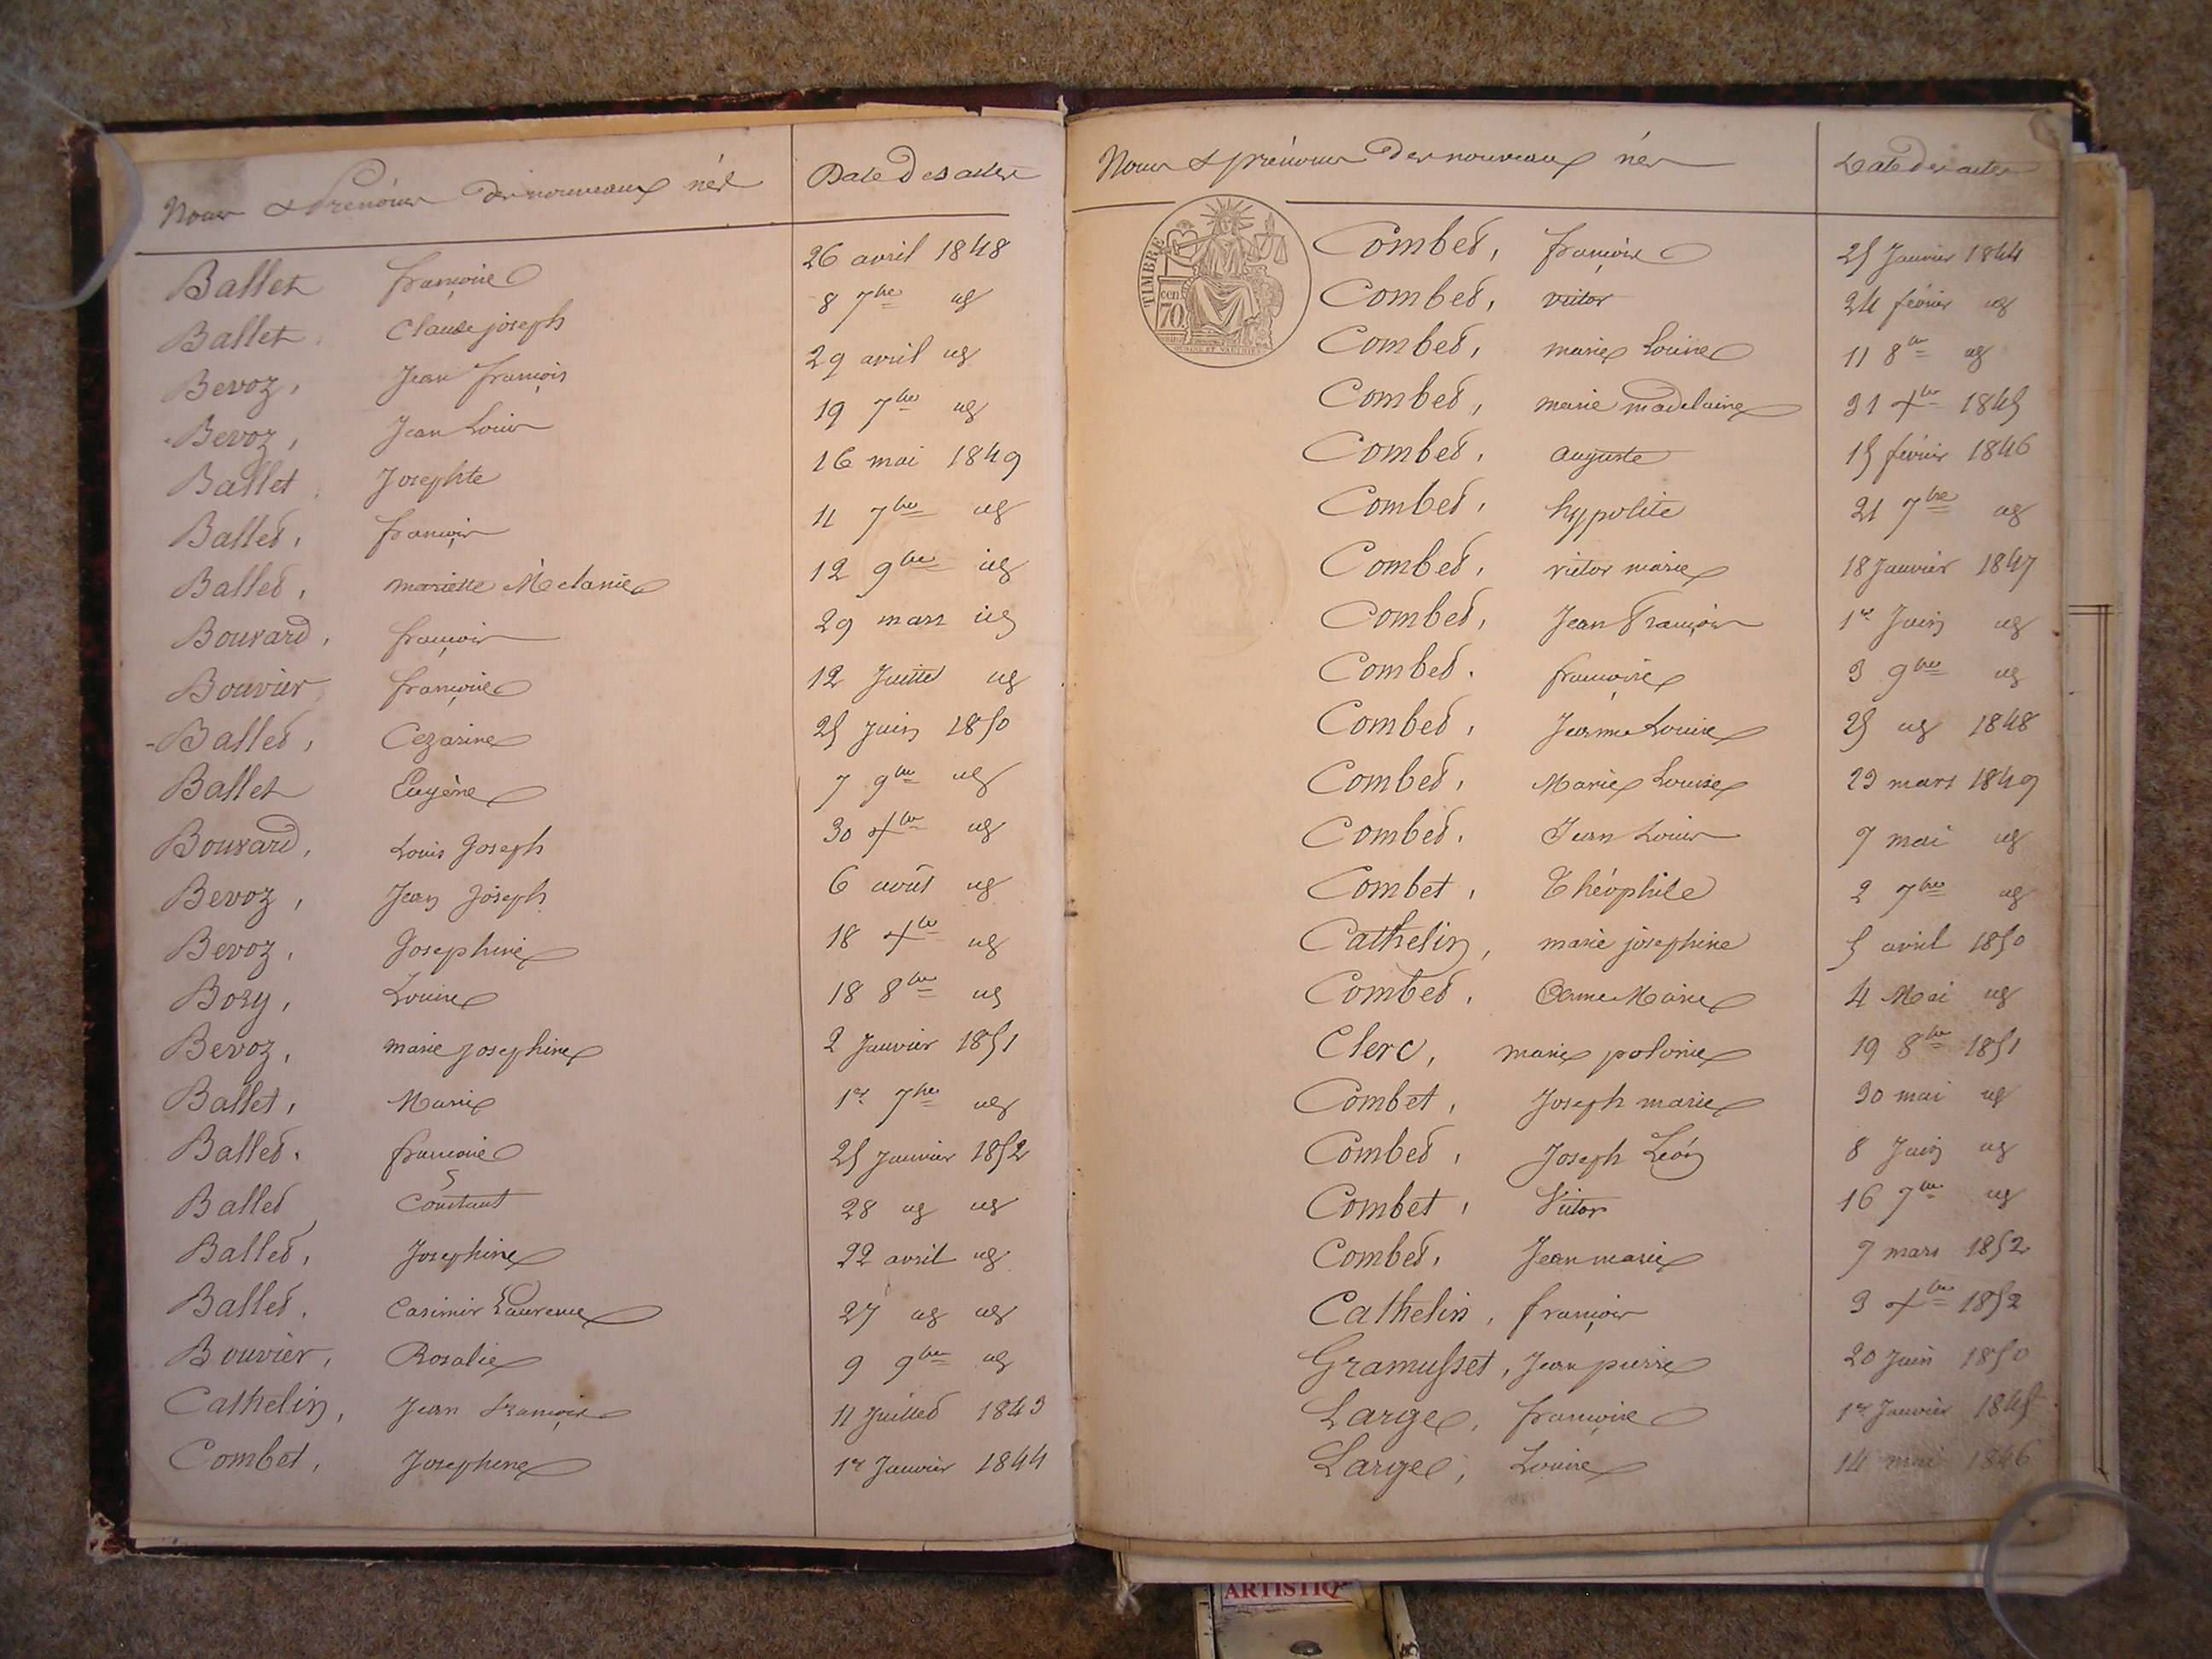 Noms & Prénoms des nouveaux nés Date des actes
Ballet françoise 26 avril 1848
Ballet Claude joseph 8 7bre ug
Bevoz, Jean françois 29 avril ug
Bevoz, Jean Louis 19 7bre ug
Ballet Josephte 16 mai 1849
Ballet, françois 11 7bre ug
Ballet, mariette Mélanie 12 9bre ug
Bouvard, françois 29 mars ug
Bouvier françoise 12 Juillet ug
Ballet, Cezarine 25 Juin 1850
Ballet Eugène 7 9bre ug
Bouvard, Louis Joseph 30 xbre ug
Bevoz, Jean Joseph 6 août ug
Bevoz, Josephine 18 xbre ug
Bosy, Louise 18 8bre ug
Bevoz, marie josephine 2 Janvier 1851
Ballet, Marie 1er 7bre ug
Ballet, françoise 25 Janvier 1852
Ballet, Constant 28 ug ug
Ballet, Josephine 22 avril ug
Ballet, Casimir Laurence 27 ug ug
Bouvier, Rosalie 9 9bre ug
Cathelin, Jean françois 11 Juillet 1843
Combet, Josephine 1er Janvier 1844
Noms & prénoms des nouveaux nés Date des actes
TIMBRE
70 cen
Combet, françoise 25 Janvier 1844
Combet, victor 24 février ug
Combet, marie Louise 11 8bre ug
Combet, marie madelaine 31 xbre 1845
Combet, auguste 15 février 1846
Combet, hypolite 21 7bre ug
Combet, victor marie 18 Janvier 1847
Combet, Jean François 1er Juin ug
Combet, françoise 3 9bre ug
Combet, Jeanne Louise 25 ug 1848
Combet, Marie Louise 23 mars 1849
Combet, Jean Louis 7 mai ug
Combet, Théophile 2 7bre ug
Cathelin, marie josephine 5 avril 1850
Combet, Anne Marie 4 Mai ug
Clerc, marie polonie 19 8bre 1851
Combet, Joseph marie 30 mai ug
Combet, Joseph Léon 8 Juin ug
Combet, Victor 16 7bre ug
Combet, Jean marie 7 mars 1852
Cathelin, françois 3 xbre 1852
Gramusset, Jean pierre 20 Juin 1850
Large, françoise 1er Janvier 1845
Large, Louise 14 mai 1846
ARTISTIQ